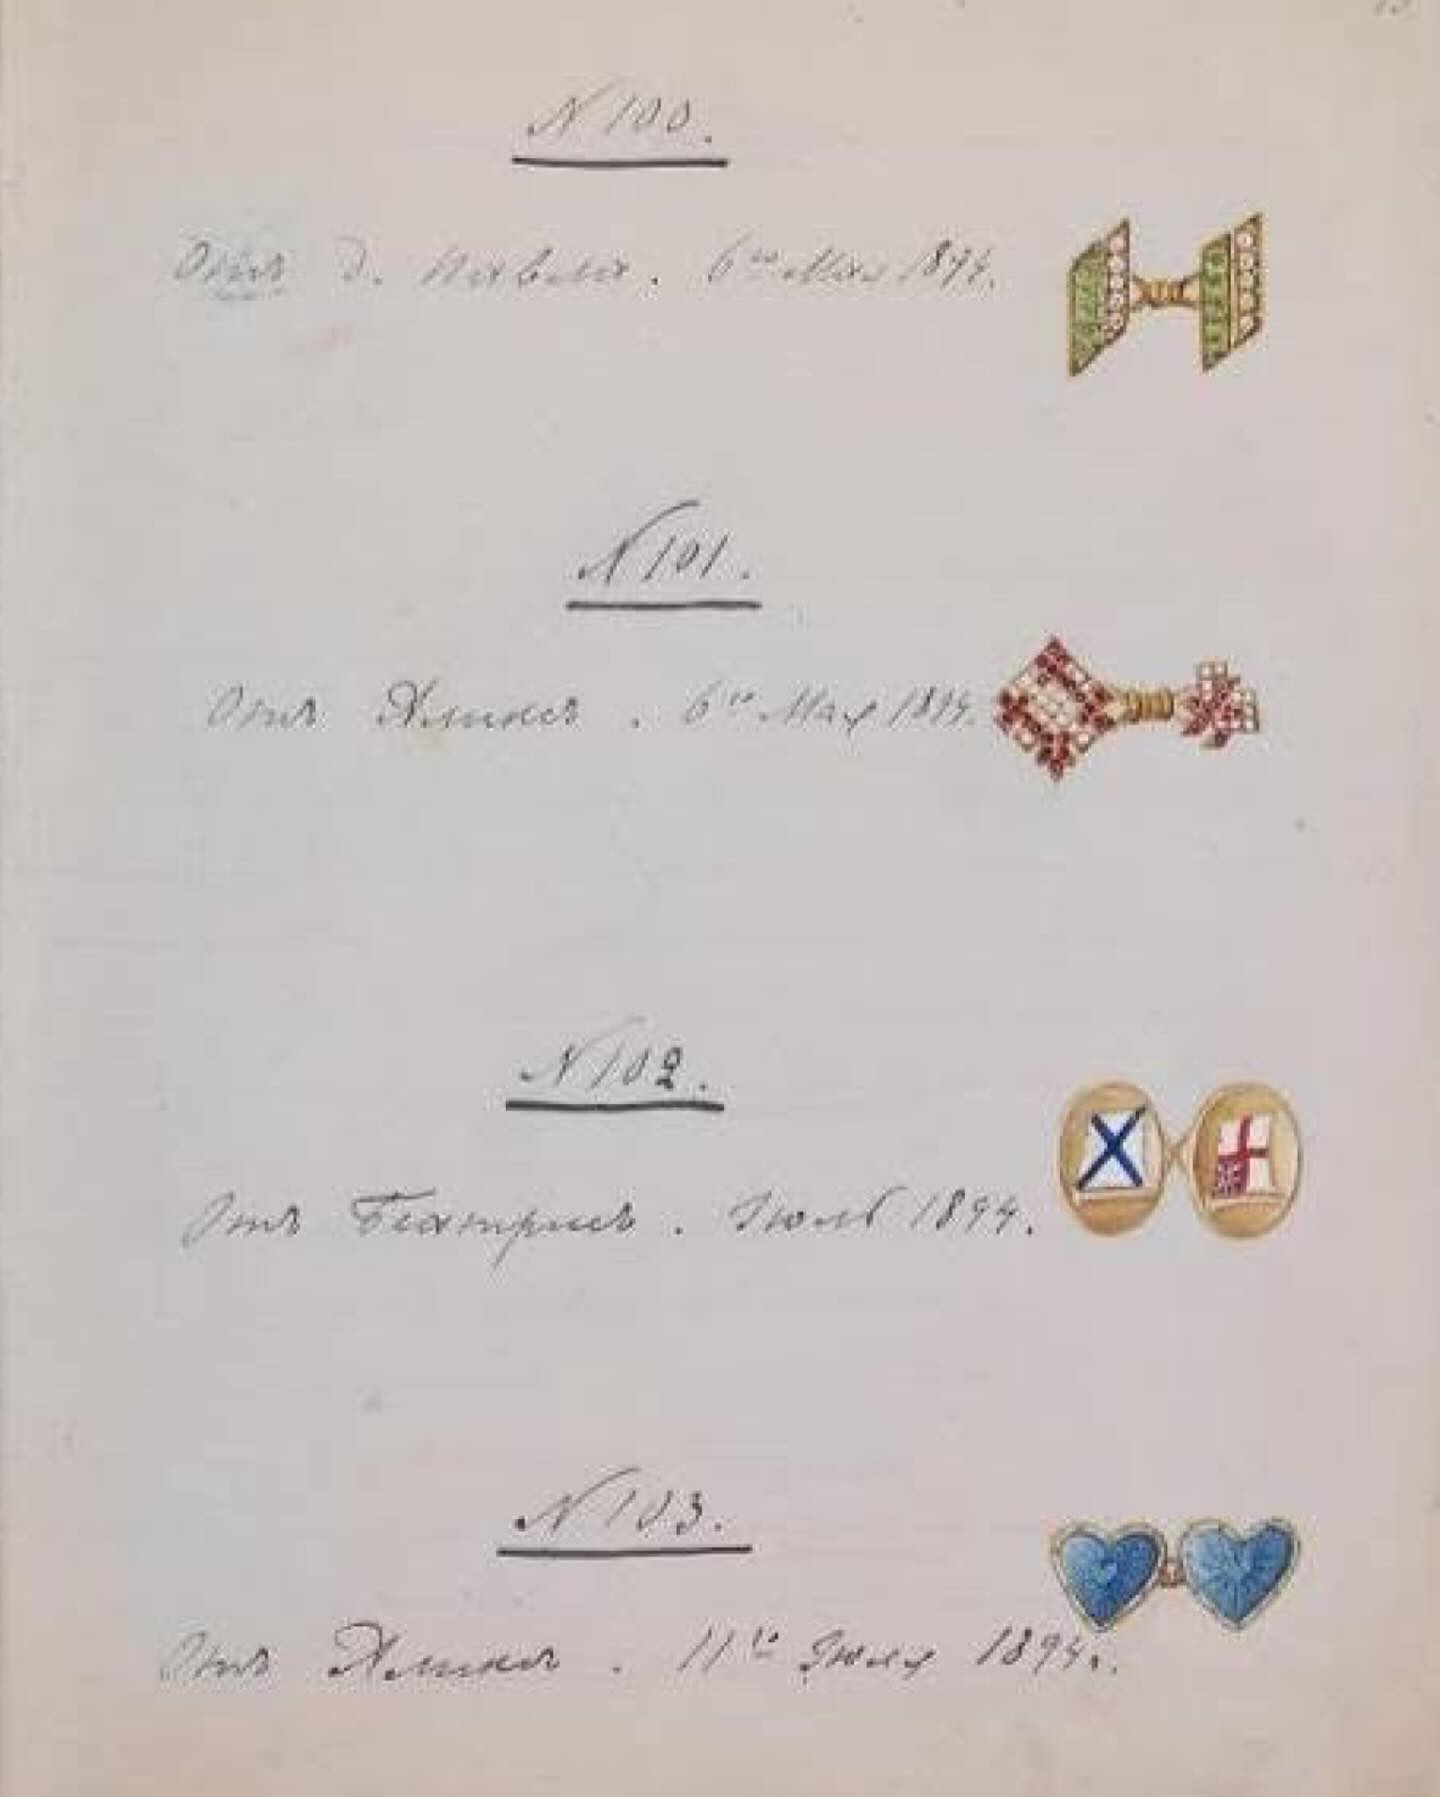 N 100.
Отъ д. Павла. 6го Мая 1894.
N 101.
Отъ Аликсъ. 6го Мая 1894.
N 102.
Отъ Беатрисъ. Іюль 1894.
N 103.
Отъ Аликсъ. 11го Іюля 1894.